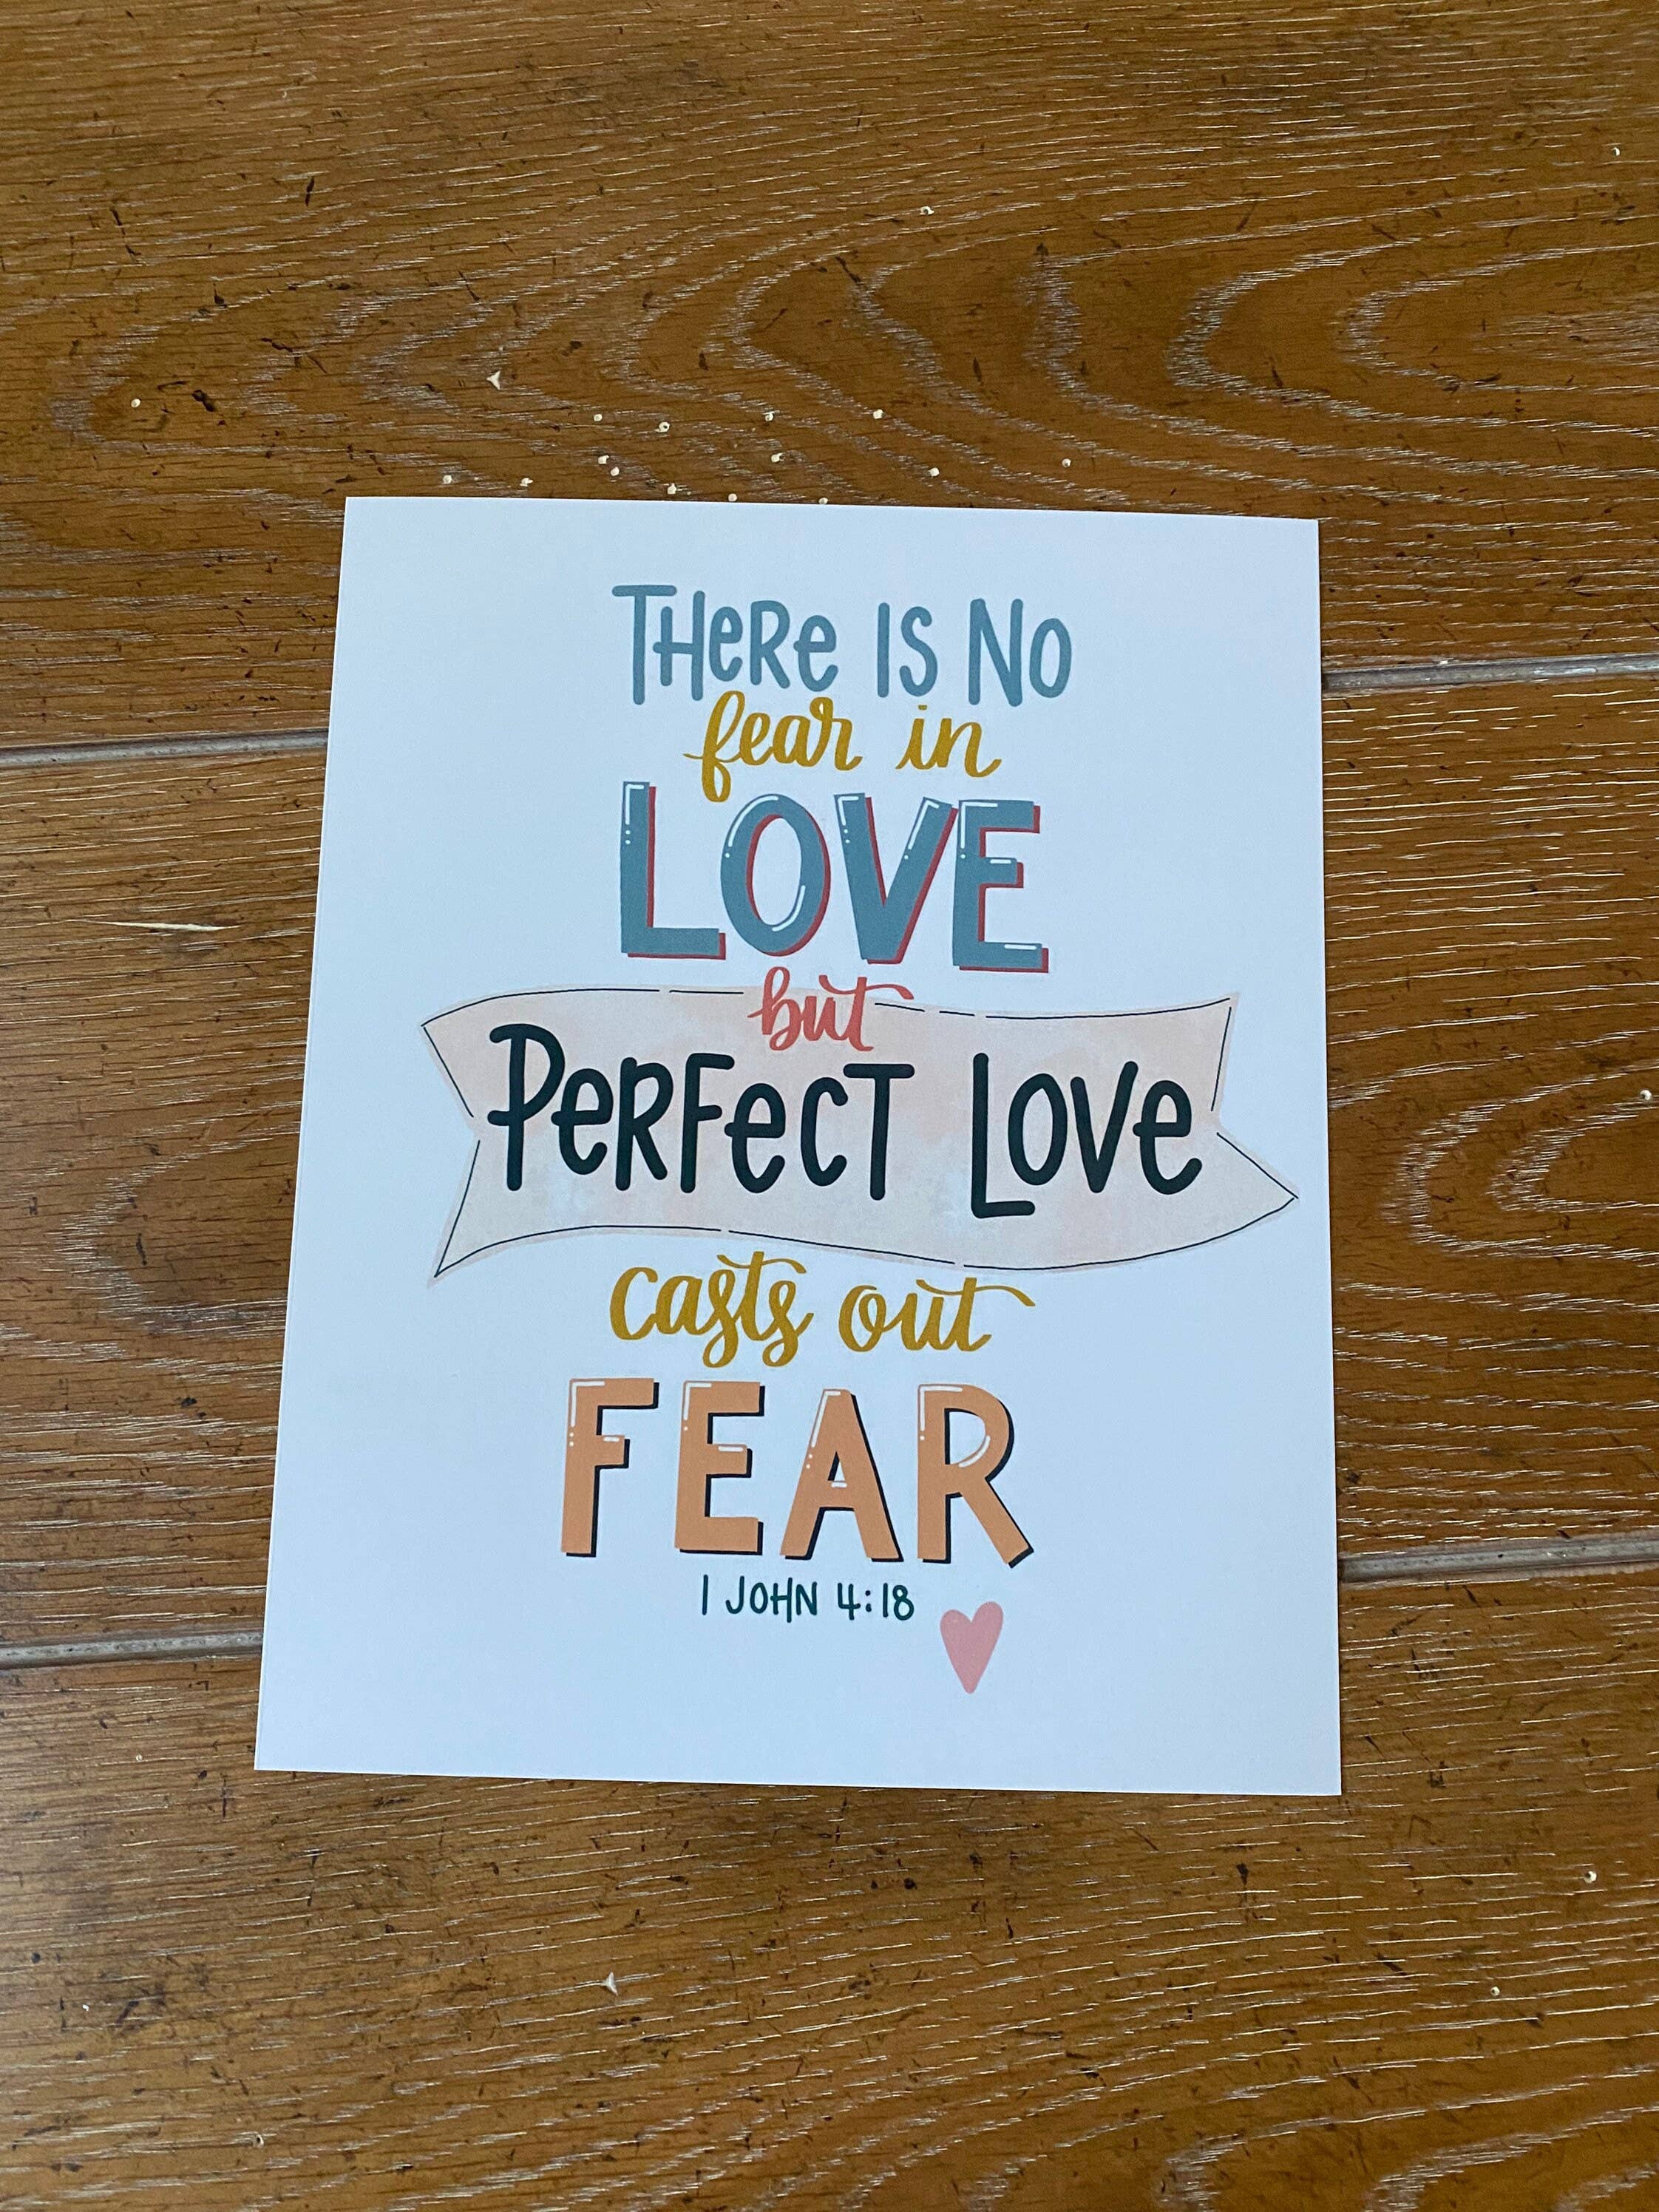 THeRe IS No
fear in
LOVE
but
PeRFecT Love
casts out
FEAR
1 JOHN 4:18